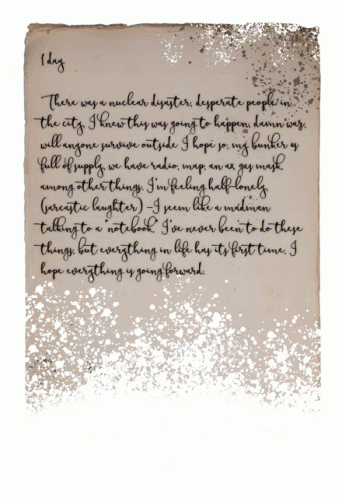 1 day
There was a nuclear disaster, desperate people in
the city, I knew this was going to happen, damn war,
will anyone survive outside I hope so, my bunker is
full of supply, we have radio, map, an ax gas mask,
among other things, I'm feeling half-lonely,
(sarcastic laughter) -I seem like a madman
talking to a "notebook," I've never been to do these
things, but everything in life has its first time, I
hope everything is going forward.